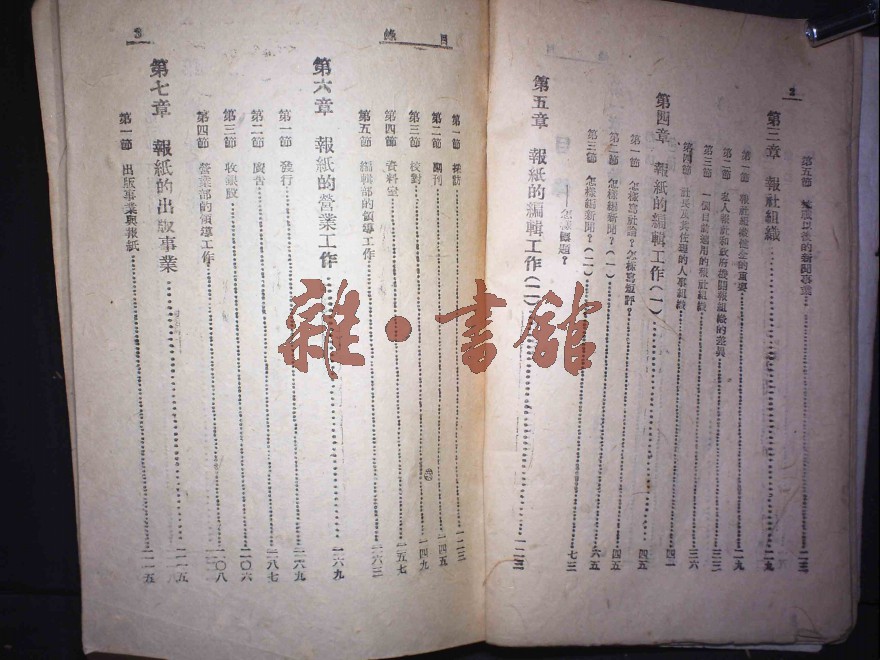 2
第五節 ⋯⋯以後的新聞事業⋯⋯二三
第三章 報社組織⋯⋯二九
第一節 報社組織健全的重要⋯⋯二九
第二節 私人報社和政府機關報組織的差異⋯⋯三三
第三節 一個目前適用的報社組織⋯⋯三六
第四節 社長及其任理的人事組織⋯⋯四一
第四章 報紙的編輯工作(一)⋯⋯四五
第一節 怎樣寫社論?怎樣寫短評?⋯⋯四五
第二節 怎樣編新聞?(一)⋯⋯四五
第三節 怎樣編新聞?(二)⋯⋯六五
——怎樣標題?⋯⋯七三
第五章 報紙的編輯工作(二)⋯⋯一二三
目錄
3
第一節 採訪⋯⋯一二三
第二節 副刊⋯⋯一四五
第三節 校對⋯⋯一四九
第四節 資料室⋯⋯一五七
第五節 編輯部的領導工作⋯⋯一六三
第六章 報紙的營業工作⋯⋯一六九
第一節 發行⋯⋯一六九
第二節 廣告⋯⋯一八七
第三節 收報費⋯⋯二〇六
第四節 營業部的領導工作⋯⋯二〇八
第七章 報紙的出版事業⋯⋯二一五
第一節 出版事業與報紙⋯⋯二一五
雜·書館